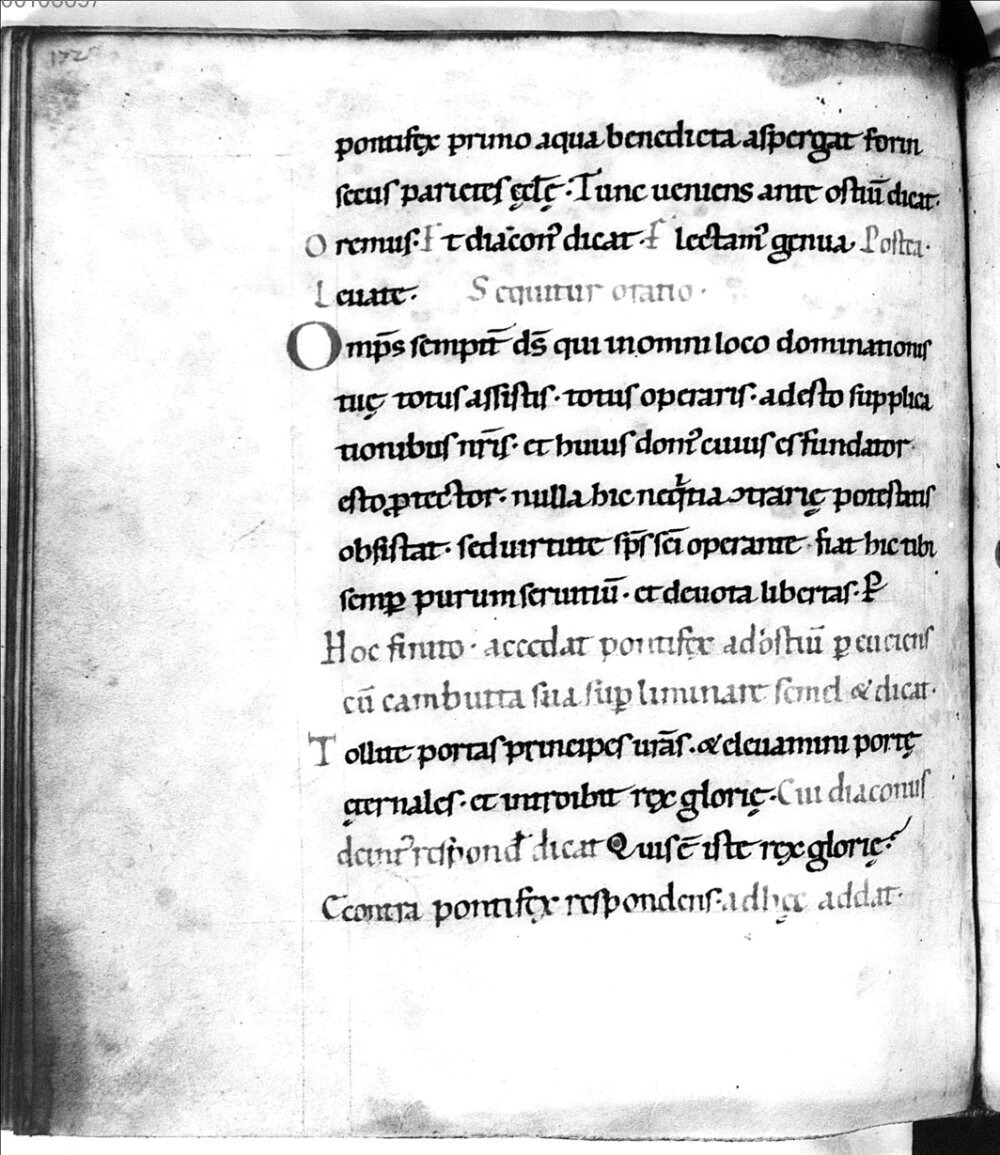 172
pontifęx primo aqua benedicta aspergat forin
secus parietes ędꝉę. Tunc ueniens ante ostiū dicat.
Oremus. Et diacon᾽ dicat. Flectam᾽ genua. Postea.
Leuate. Sequitur oratio.
Omp̄s sempit̄ ds̄ qui in omni loco dominationis
tuę totus assistis. totus operaris. adesto supplica
tionibus nr̄is. et huius dom᾽ cuius es fundator
esto ꝓtector. nulla hic neqͥtia ɔtrarię potestatis
obsistat. sed uirtute sp̄s sc̄i operante. fiat hic tibi
semꝑ purum seruitiū. et deuota libertas. P̲
Hoc finito. accedat pontifęx ad ostiū ꝑcuciens
cū cambutta sua suꝑ liminare semel & dicat.
Tollite portas principes urās. & eleuamini portę
ęternales. et introibit ręx glorię. Cui diaconus
deint᾽ respond̄ dicat Quis ē iste ręx glorię?
Econtra pontifęx respondens. ad hęc addat.